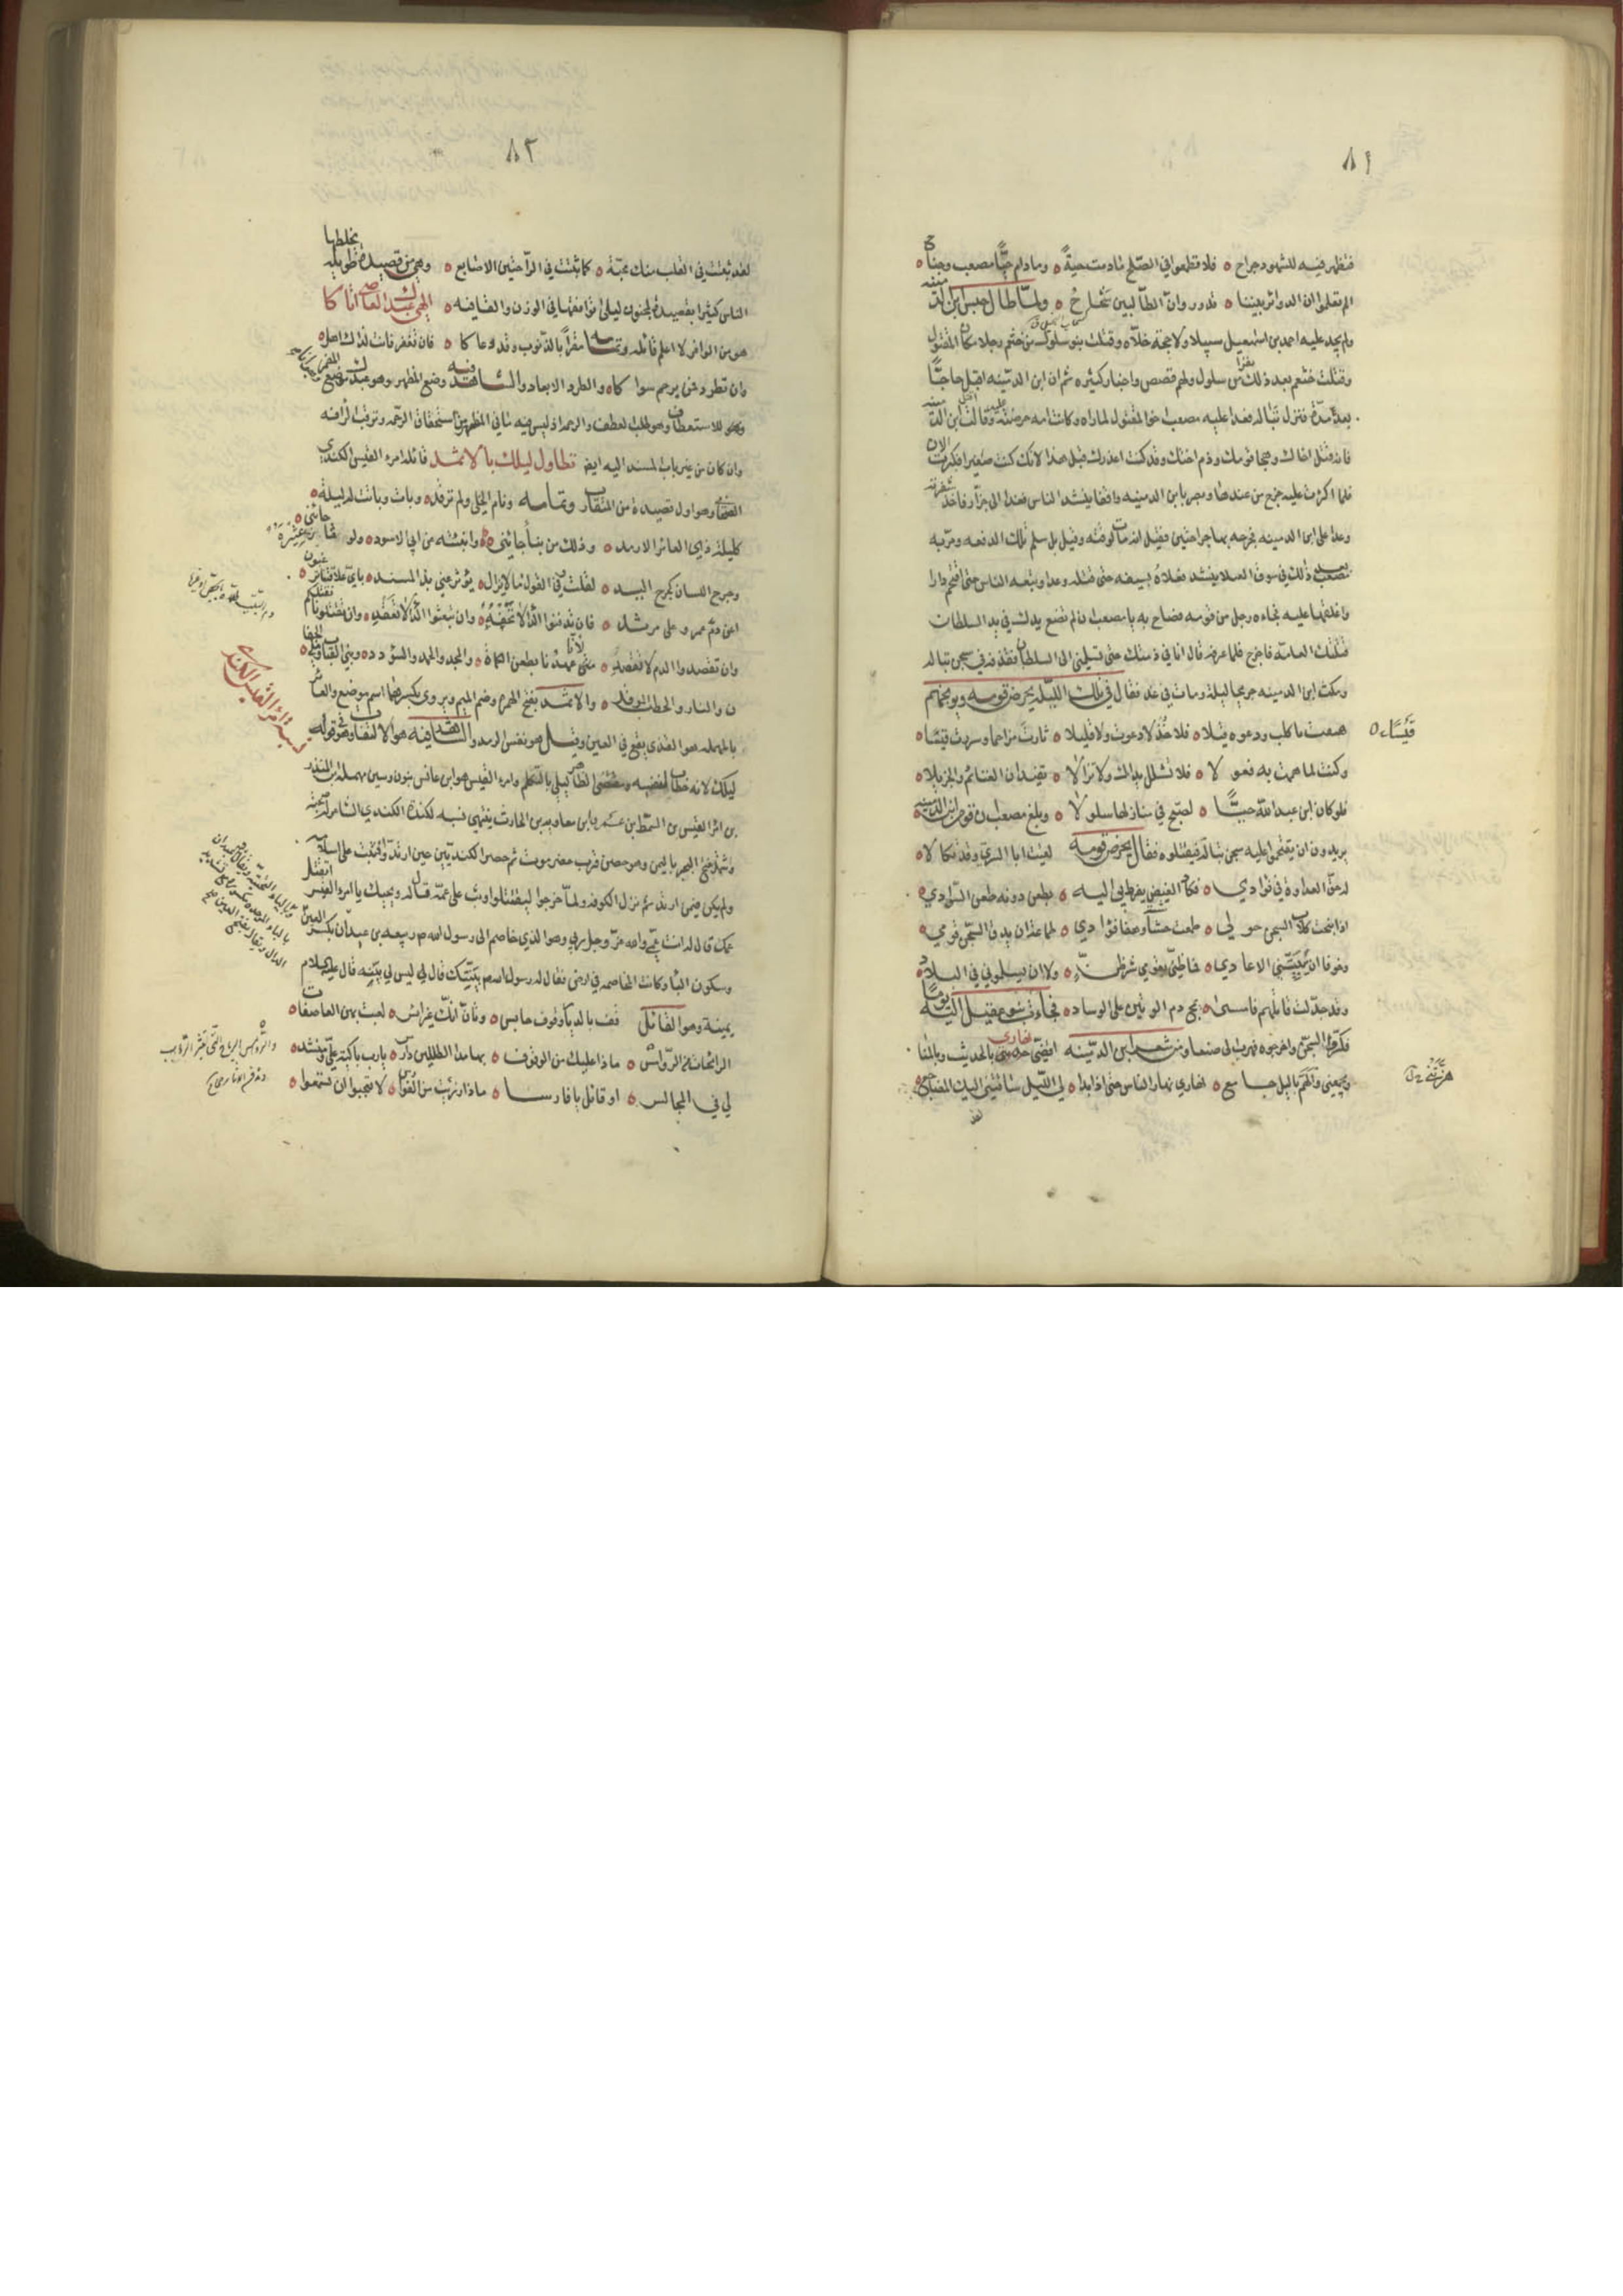 ٨١
فتظهر فيه للشهود جراح ه فلا تطمعوا في الصلح مادمت حية ه ومادام حيا مصعب وجناح ه
الم تعلموا ان الدوائر بيننا ه تدور وان الطالبين شحاح ه ولما طال حبس ابن الدمينه
ولم يجد عليه احمد بن اسمعيل سبيلا ولا حجة خلاه وقتلت بنو سلول من خثعم رجلا مكان المقتول
وقتلت خثعم بعد ذلك نفرا من سلول ولهم قصص واخبار كثيره ثم ان ابن الدمينه اقبل حاجا
بعد مدة فنزل تباله فعدا عليه مصعب اخو المقتول لما راه وكانت امه حرضته وقالت اقتل ابن الدمينه
فانه قتل اخاك وهجا قومك وذم اختك وقد كنت اعذرك قبل هذا لانك كنت صغيرا فكبرت الان
فلما اكثرت عليه خرج من عندها وبصر بابن الدمينه واقفا ينشد الناس فغدا الى جزار فاخذ شفرته
وعدا على ابن الدمينه فجرحه بها جراحتين فقيل انه مات لوقته وقيل بل سلم تلك الدفعه ومر به
مصعب بعد ذلك في سوق العبلا ينشد فعلاه بسيفه حتى قتله وعدا وتبعه الناس حتى اقتحم دارا
واغلقها عليه فجاءه رجل من قومه فصاح به يا مصعب ان لم تضع يدك في يد السلطان
قتلتك العامة فاخرج فلما عرفه قال انا في ذمتك حتى تسلمني الى السلطان فقذفه في سجن تباله
ومكث ابن الدمينه جريحا ليلة ومات في غد فقال في تلك الليله يحرض قومه ويوبخهم
هتفت باكلب ودعوت قيسا ه فلا خذلا دعوت ولا قليلا ه ثارت مزاحما وسررت قيسا ه
قيسا ه
وكنت لما هممت به فعو لا ه فلا تشلل يداك ولا تزالا ه تفيدان الغنائم والجزيلا ه
فلو كان ابن عبد الله حيا ه لصبح في منازلها سلو لا ه وبلغ مصعب ان قوم ابن الدمينه
يريدون ان يقتحموا عليه سجن تباله فيقتلوه فقال يحرض قومه لقيت ابا السري وقد تكالا ه
له حق العداوة في فوادي ه فكاد الغيض يفرطني اليه ه بطعن دونه طعن السوادي ه
اذا نبحت كلاب السجن حولي ه طمعت هشاشة وهفا فوادي ه طماعة ان يدق السجن قومي ه
وخوفا ان يبيتني الاعادي ه فما ظني بقومي شر ظن ه ولا ان يسلموني في البلاد ه
وقد جدلت قاتلهم فامسى ه يمج دم الوتين على الوساد ه فجاءت بنو عقيل اليه يوما
فكسروا السجن واخرجوه فهرب الى صنعا ومن شعر ابن الدمينه اقضي نهاري بالحديث وبالمنا
ويجمعني والهم بالليل جامع ه نهاري نهار الناس حتى اذا بدا ه لي الليل شاقتني اليك المضاجع ه
هزتني ن
لقد
٨٢
لقد ثبتت في القلب منك محبة ه كما ثبتت في الراحتين الاصابع ه وهي من قصيدة طويله يخلطها
الناس كثيرا بقصيدة لمجنون ليلى توافقها في الوزن والقافيه ه الهي عبدك العاصي اتاكا
هو من الوافر لا اعلم قائله وتمامه مقرا بالذنوب وقد دعاكا ه فان تغفر فانت لذاك اهل ه
وان تطرد فمن يرحم سواكا ه والطرد الابعاد والشاهد فيه وضع المظهر وهو عبدك موضع المضمر
وهو للاستعطاف وهو طلب العطف والرحمه اذ ليس فيه ما في المظهر من استحقاق الرحمه وترقب الرافه
وان كان من غير باب المسند اليه ايض تطاول ليلك بالاثمد قائله امرء القيس الكندي
الصحابي وهو اول قصيدة من المتقارب وتمامه ونام الخلي ولم ترقد ه وبات وباتت له ليلة ه
كليلة ذي العائر الارمد ه وذلك من نبأ جائني ه وانبئته عن ابي الاسود ه ولو عن نثا غيره جائني ه
وجرح اللسان كجرح اليد ه لقلت من القول ما لا يزال ه يؤثر عني يد المسند ه باي علاقتنا ترغبون
اعن دم عمرو على مرثد ه فان تدفنوا الداء لا نخفه ه وان تبعثوا الداء لا نقعد ه وان تقتلونا نقتلكم
وان تقصدوا الدم لا نقصد ه متى عهدنا بطعن الكماة ه والمجد والحمد والسؤدد ه وبني القباب وملء الجفان
والنار والحطب الموقد ه والاثمد بفتح الهمزه وضم الميم ويروى بكسرهما اسم موضع والعائر
بالمهمله هو القذى يقع في العين وقيل هو نفس الرمد والشاهد فيه هو الالتفات في قوله
ليلك لانه خطاب لنفسه ومقتضى الظاهر ليلي بالتكلم وامرء القيس هو ابن عانس بنون وسين مهمله ابن المنذر
بن امرء القيس بن السمط ابن عمرو بن معاويه بن الحارث ينتهي نسبه لكندة الكندي الشاعر له صحبة
وشهد فتح النجير باليمن وهو حصن قرب حضرموت ثم حضر الكنديين حين ارتد وثبت على اسلامه
ولم يكن فيمن ارتد ثم نزل الكوفه ولما خرجوا ليقتلوا وثب على عمه فقال له ويحك يا امرء القيس اتقتل
عمك قال له انت عمي والله عز وجل ربي وهو الذي خاصم الى رسول الله صم ربيعه بن عيدان بكسر العين
وسكون الياء وكانت المخاصمه في ارض فقال له رسول الله صم بينتك قال لي ليس لي بينه قال عليه السلام
يمينه وهو القائل قف بالديار وقوف حابس ه وتان انك غير ائس ه لعبت بهن العاصفات
الرائحات من الروامس ه ماذا عليك من الوقوف ه بهامد الطللين دارس ه يا رب باكية علي ومنشد ه
لي في المجالس ه او قائل يا فارسا ه ماذا رزئت من الفوارس ه لا تعجبوا ان تسمعوا ه
نسبة امرء القيس الكندي